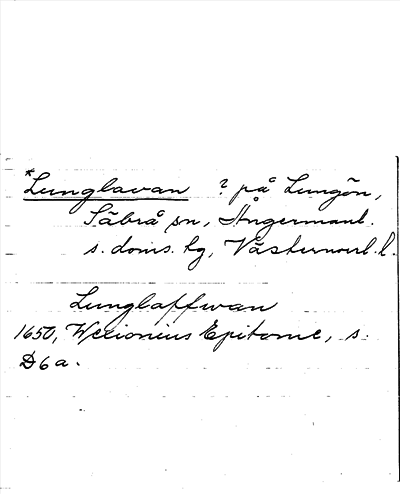 *Lunglavan ? på Lungön,
Säbrå sn, Ångermanl.
s. doms. hg, Västernorrl. l.
Lunglaffwan
1650, Wexionius Epitome, s.
D6a.